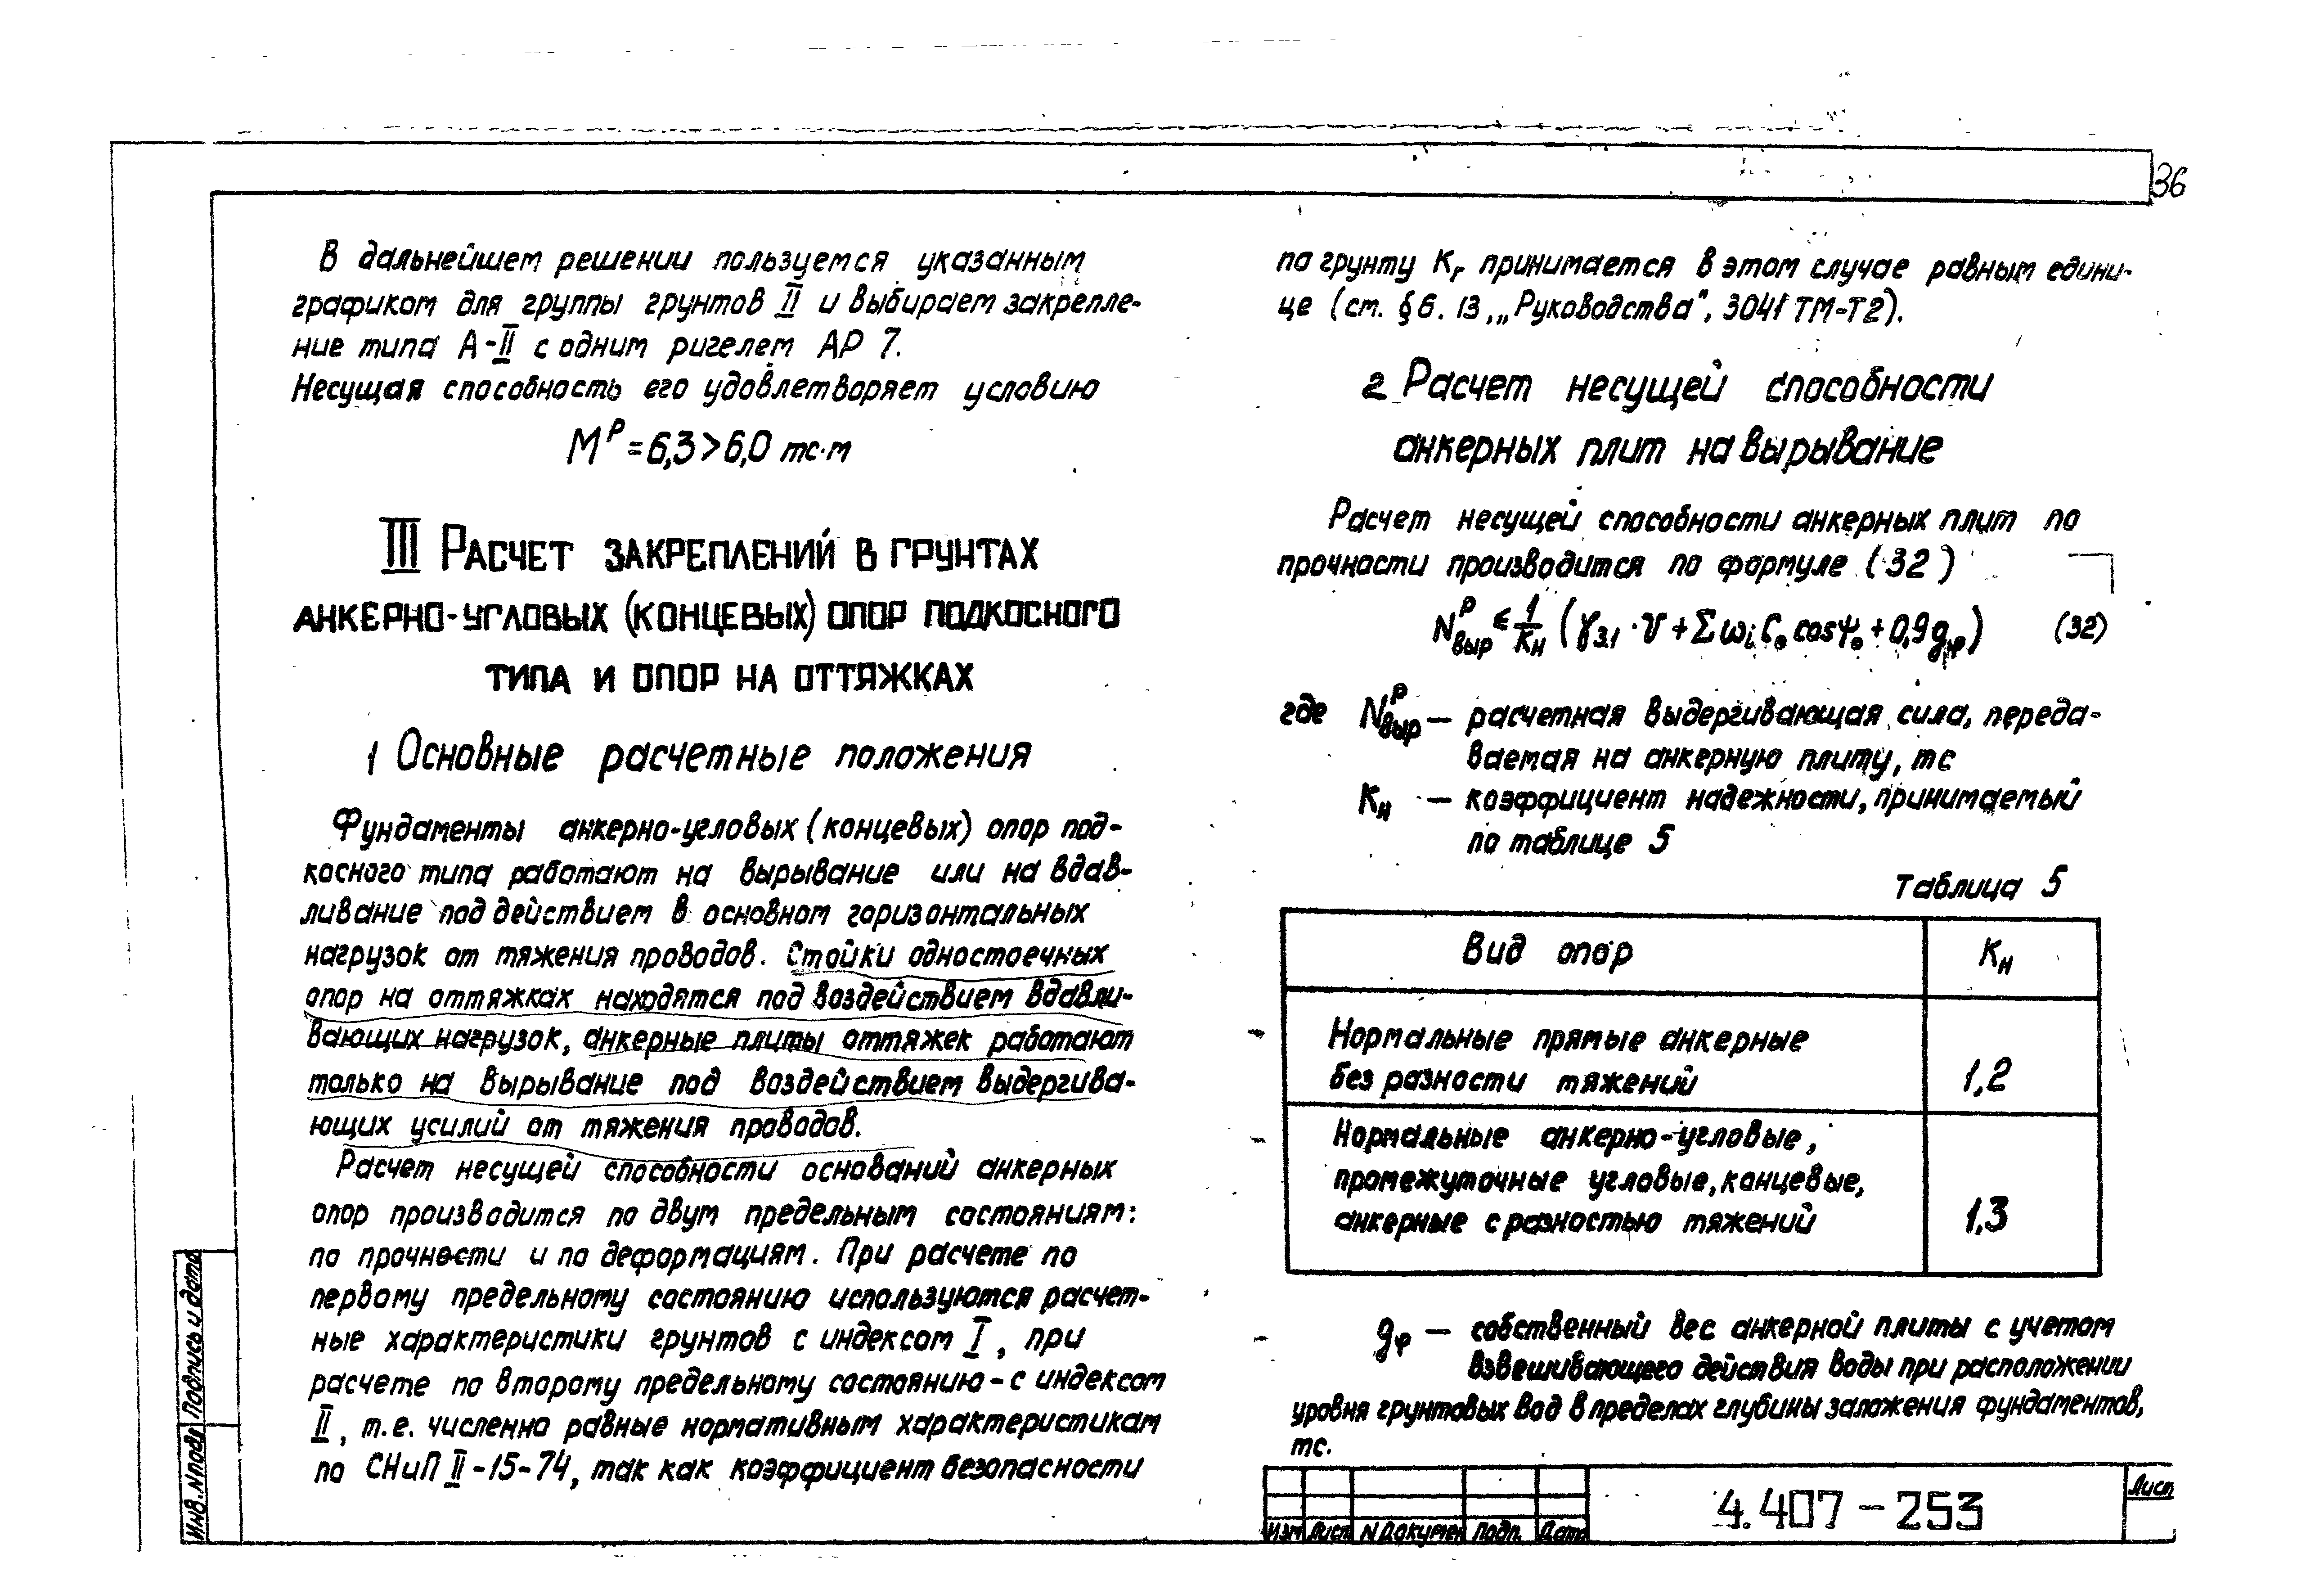 36
В дальнейшем решении пользуемся указанным
графиком для группы грунтов II и выбираем закрепле-
ние типа А-II с одним ригелем АР 7.
Несущая способность его удовлетворяет условию
Mᴾ = 6,3 > 6,0 тс·м
III РАСЧЕТ ЗАКРЕПЛЕНИЙ В ГРУНТАХ
АНКЕРНО-УГЛОВЫХ (КОНЦЕВЫХ) ОПОР ПОДКОСНОГО
ТИПА И ОПОР НА ОТТЯЖКАХ
1 Основные расчетные положения
Фундаменты анкерно-угловых (концевых) опор под-
косного типа работают на вырывание или на вдав-
ливание под действием в основном горизонтальных
нагрузок от тяжения проводов. Стойки одностоечных
опор на оттяжках находятся под воздействием вдавли-
вающих нагрузок, анкерные плиты оттяжек работают
только на вырывание под воздействием выдергива-
ющих усилий от тяжения проводов.
Расчет несущей способности оснований анкерных
опор производится по двум предельным состояниям:
по прочности и по деформациям. При расчете по
первому предельному состоянию используются расчет-
ные характеристики грунтов с индексом I, при
расчете по второму предельному состоянию - с индексом
II, т.е. численно равные нормативным характеристикам
по СНиП II-15-74, так как коэффициент безопасности
по грунту Kг принимается в этом случае равным едини-
це (ст. § 6. 13, „Руководства", 3041 ТМ-Т2).
2 Расчет несущей способности
анкерных плит на вырывание
Расчет несущей способности анкерных плит по
прочности производится по формуле (32)
Nᴾвыр ≤ 1/Kн (γз.1 · V + Σ ωi C₀ cos ψ₀ + 0,9 gф) (32)
где Nᴾвыр — расчетная выдергивающая сила, переда-
ваемая на анкерную плиту, тс
Kн — коэффициент надежности, принимаемый
по таблице 5
Таблица 5
Вид опор Kн
Нормальные прямые анкерные
без разности тяжений 1,2
Нормальные анкерно-угловые,
промежуточные угловые, концевые,
анкерные с разностью тяжений 1,3
gф — собственный вес анкерной плиты с учетом
взвешивающего действия воды при расположении
уровня грунтовых вод в пределах глубины заложения фундаментов,
тс.
Инв. N подл Подпись и дата
Изм Лист N Докумен Подп. Дата
4.407-253
Лист